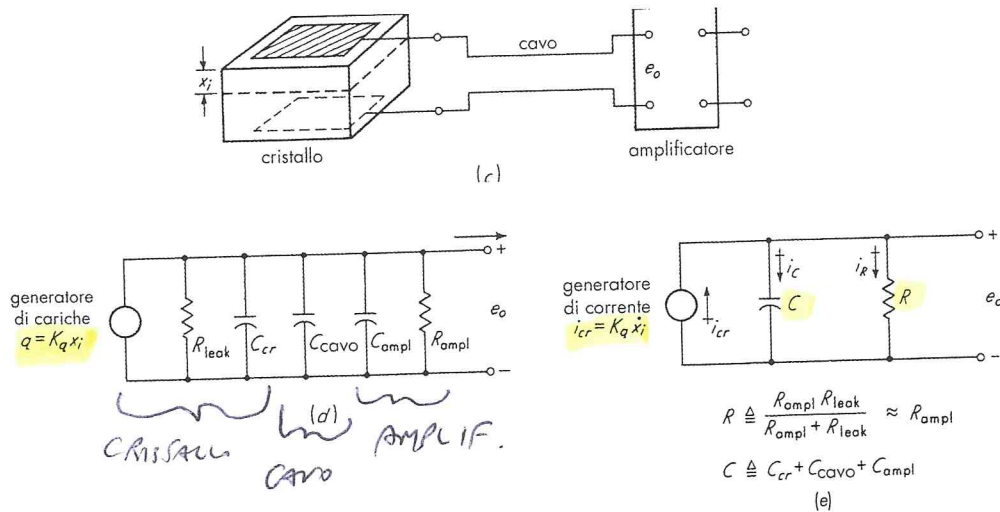 cavo
x_i
e_o
cristallo
amplificatore
(c)
generatore
di cariche
q = K_q x_i
R_leak
C_cr
C_cavo
C_ampl
R_ampl
+
e_o
−
(d)
CRISTALLO
CAVO
AMPLIF.
generatore
di corrente
i_cr = K_q ẋ_i
i_cr
i_C
C
i_R
R
+
e_o
−
R ≜ R_ampl R_leak / R_ampl + R_leak ≈ R_ampl
C ≜ C_cr + C_cavo + C_ampl
(e)